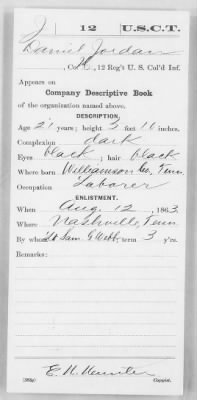 J 12 U.S.C.T.
Daniel Jordan
Co. , 12 Reg't U. S. Col'd Inf.
Appears on
Company Descriptive Book
of the organization named above.
DESCRIPTION.
Age 21 years; height 5 feet 10 inches.
Complexion dark
Eyes black; hair black
Where born Williamson Co. Tenn.
Occupation Laborer
ENLISTMENT.
When Aug. 12, 1863.
Where Nashville, Tenn.
By whom Lt Sam G Webb; term 3 y'rs.
Remarks:
E. H. Copyist.